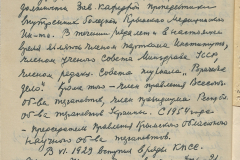 должности Зав. Кафедрой пропедевтики
внутренних болезней Крымского Медицинского
Ин-та. В течении ряда лет и в настоящее
время являюсь членом парткома Института,
членом ученого Совета Минздрава УССР,
членом редакц. Совета журнала „Врачебное
дело". Кроме того - член правления Всесоюз.
об-ва терапевтов, член президиума Респуб.
об-ва терапевтов Украины. С 1954 года -
председатель правления Крымского областного
научного об-ва терапевтов.
В VI. 1929 вступил в ряды КПСС.